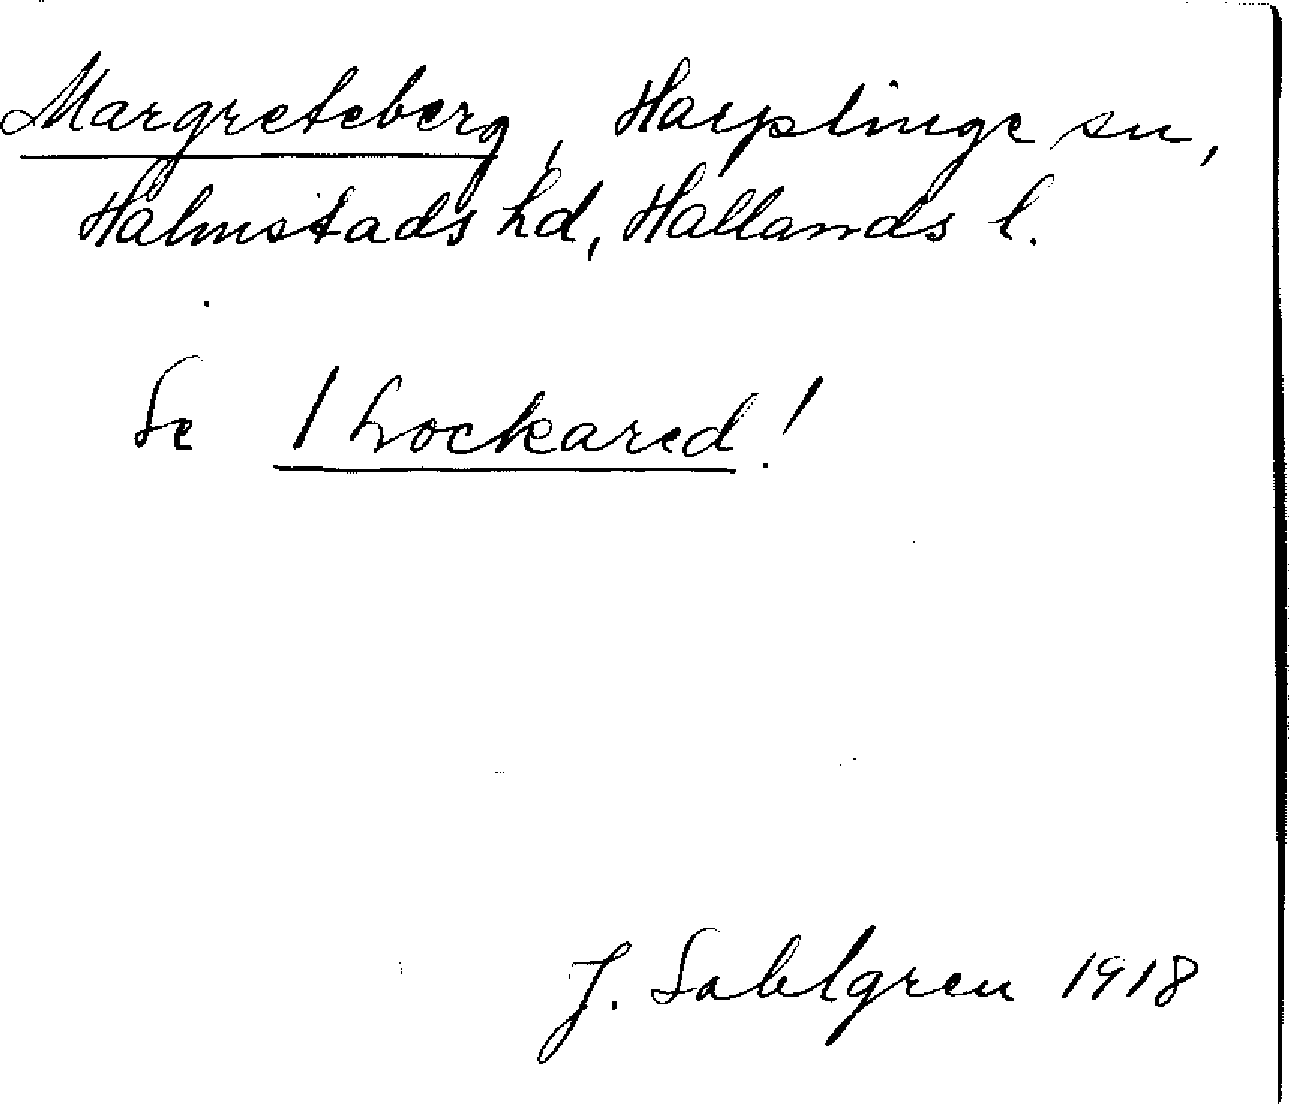 Margreteberg, Harplinge sn,
Halmstads hd, Hallands l.
Se 1 Lockared!
J. Sahlgren 1918